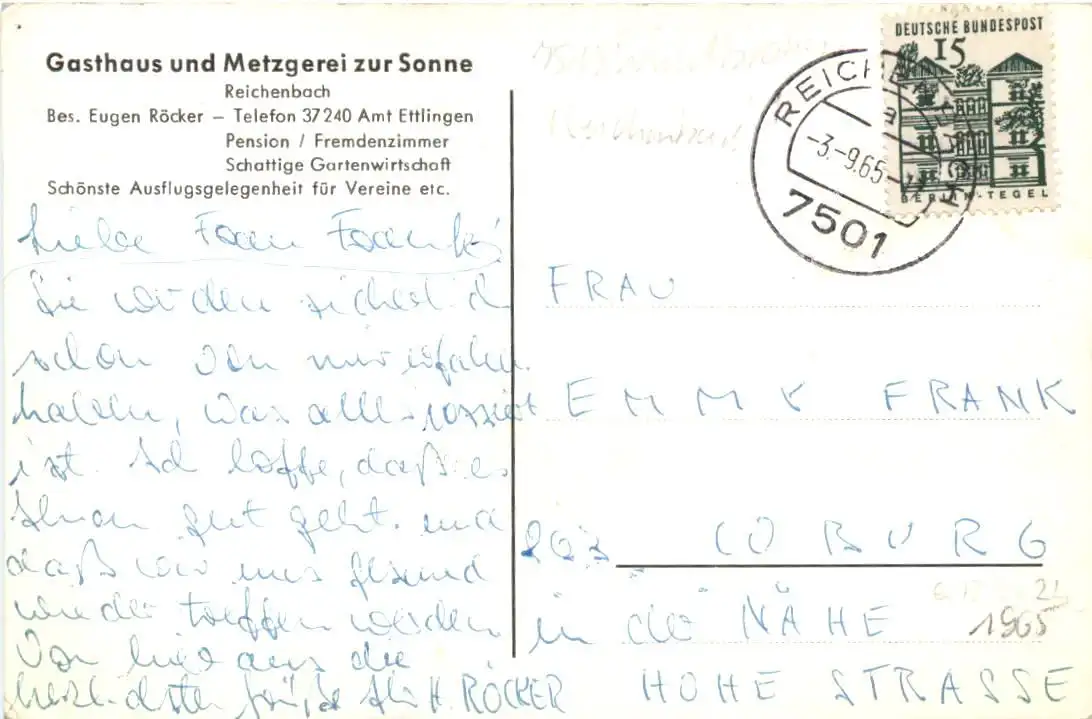 Gasthaus und Metzgerei zur Sonne
Reichenbach
Bes. Eugen Röcker – Telefon 37240 Amt Ettlingen
Pension / Fremdenzimmer
Schattige Gartenwirtschaft
Schönste Ausflugsgelegenheit für Vereine etc.
Liebe Frau Frank!
Sie werden sicherlich
schon von mir erfahren
haben, was alles passiert
ist. Ich hoffe, daß es
Ihnen gut geht und
daß wir uns gesund
wieder treffen werden
Von hier aus die
herzlichsten Grüße Ihr H. RÖCKER
DEUTSCHE BUNDESPOST
15
BERLIN-TEGEL
REICHENBACH
-3.-9.65
7501
FRAU
EMMY FRANK
863 COBURG
in der NÄHE
1965
HOHE STRASSE